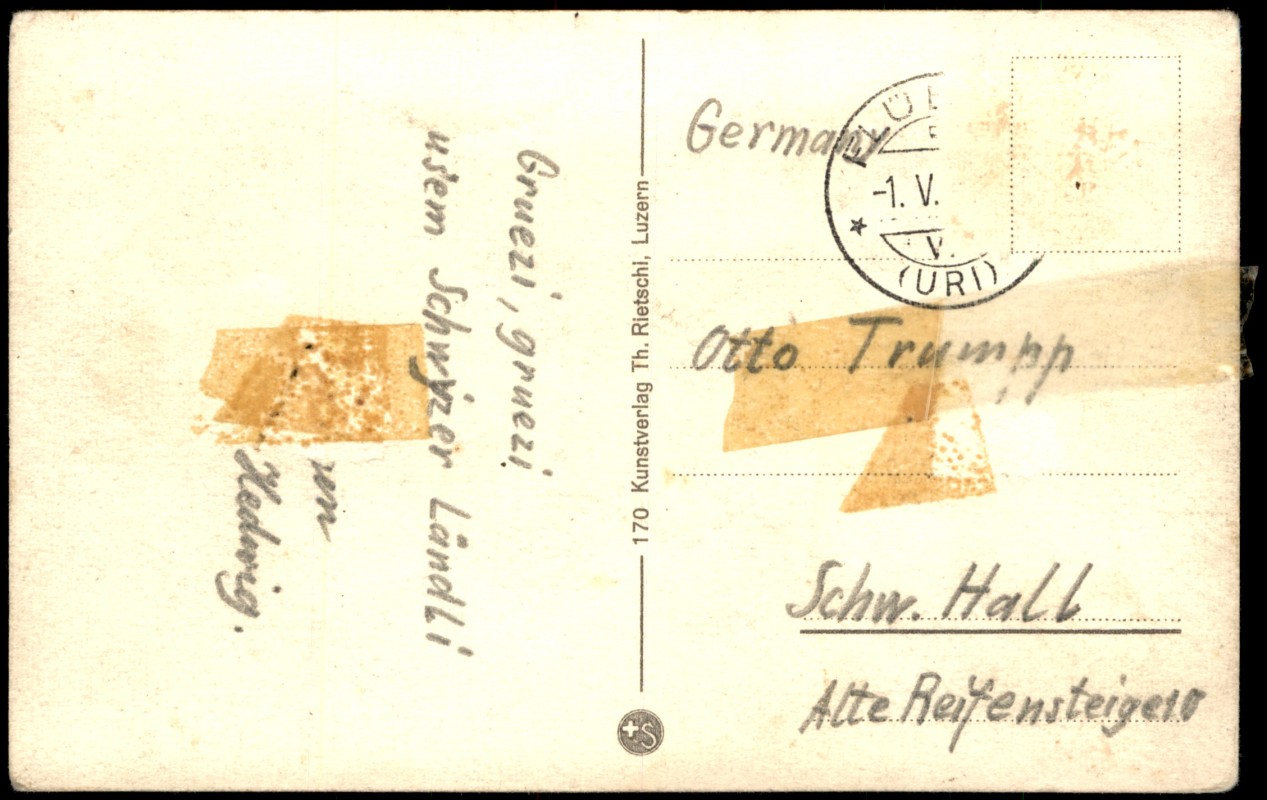 Gruezi, gruezi
usem Schwyzer Ländli
Hedwig.
170 Kunstverlag Th. Rietschi, Luzern
Germany
-1. V.
V.
(URI)
Otto Trumpp
Schw. Hall
Alte Reifensteige 10
+S